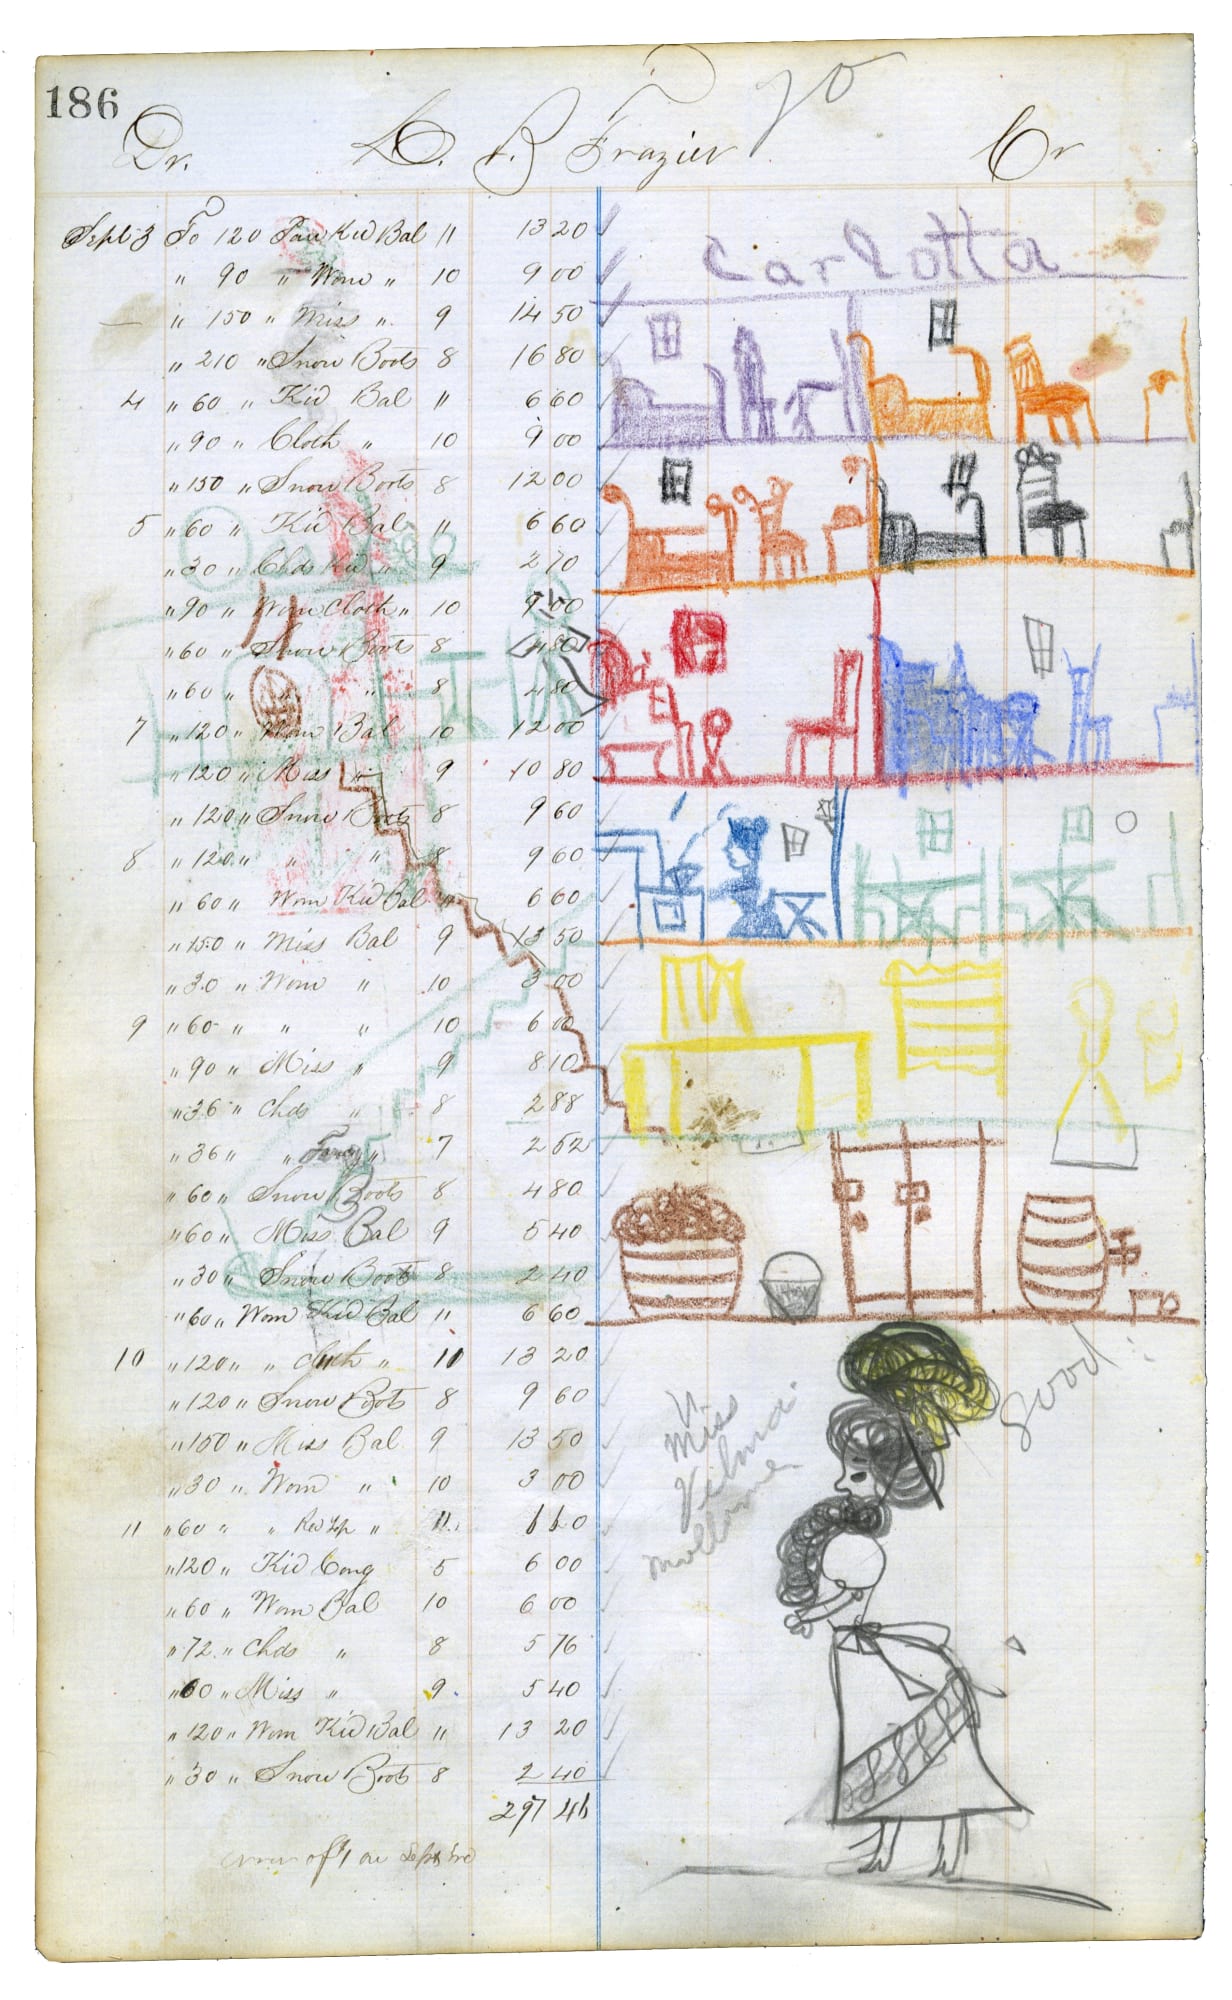 186
70
Dr. L. B Frazier Cr
Sept 3 To 120 Kid Bal 11 13 20
Carlotta
" 90 " Wom " 10 9 00
" 150 " Miss " 9 14 50
" 210 " Snow Boots 8 16 80
4 " 60 " Kid Bal 11 6 60
" 90 " Cloth " 10 9 00
" 150 " Snow Boots 8 12 00
5 " 60 " Kid Bal 11 6 60
" 30 " Chds Kid " 9 2 70
" 90 " Wom Cloth " 10 9 00
" 60 " Snow Boots 8 4 80
" 60 " " " 8 4 80
7 " 120 " Wom Bal 10 12 00
" 120 " Miss " 9 10 80
" 120 " Snow Boots 8 9 60
8 " 120 " " " 8 9 60
" 60 " Wom Kid Bal 11 6 60
" 150 " Miss Bal 9 13 50
" 30 " Wom " 10 3 00
9 " 60 " " " 10 6 00
" 90 " Miss " 9 8 10
" 36 " Chds " 8 2 88
" 36 " " " 7 2 52
" 60 " Snow Boots 8 4 80
" 60 " Miss Bal 9 5 40
" 30 " Snow Boots 8 2 40
" 60 " Wom Kid Bal 11 6 60
10 " 120 " " Cloth " 10 13 20
good
" 120 " Snow Boots 8 9 60
Miss
Vilma
" 150 " Miss Bal 9 13 50
" 30 " Wom " 10 3 00
11 " 60 " " " 11 6 60
" 120 " Kid Cong 5 6 00
" 60 " Wom Bal 10 6 00
" 72 " Chds " 8 5 76
" 60 " Miss " 9 5 40
" 120 " Wom Kid Bal 11 13 20
" 30 " Snow Boots 8 2 40
297 46
error of 1 on Sept 3rd